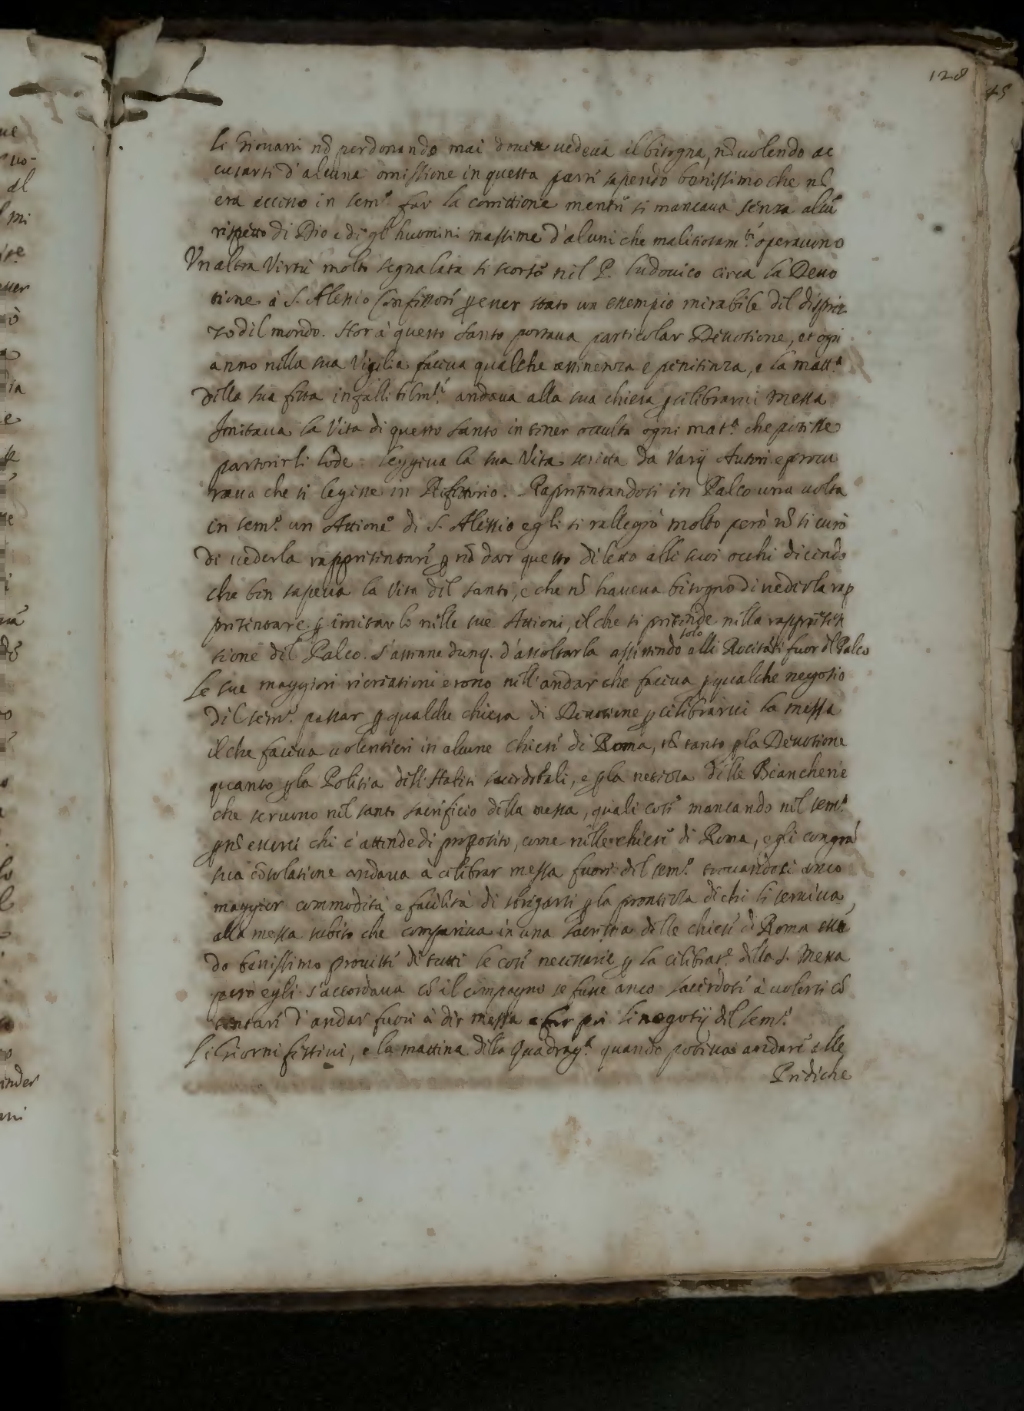 128
45
li Giovani nō perdonando mai dove vedeva il bisogno, nō volendo ac
cusarsi d'alcuna omissione in questa parte sapendo benissimo che nō
era acciò in sem.º far la correttione mentre si mancava senza alcū
rispetto di Dio e degl'huomini massime d'alcuni che malitiosam.te operavano
Un altra Virtù molto segnalata si scorse nel P. Ludovico circa la Devo
tione à S. Alessio Confessore p esser stato un essempio mirabile del disprez
zo del mondo. Hor à questo Santo portava particolar Devotione, et ogni
anno nella sua Vigilia faceva qualche astinenza e penitenza, e la matt.a
della sua festa infallibilm.te andava alla sua chiesa p celebrarvi Messa
Imitava la Vita di questo Santo in tener occulta ogni mat.a che potesse
partorirli lode. Leggeva la sua Vita scritta da Varij Autori e procu
rava che si legesse in Refettorio. Rapresentandosi in Palco una volta
in sem.º un Attione di S. Alessio egli si rallegrò molto però nō si curò
di vederla rappresentare p nō dar questo diletto alli suoi occhi dicendo
che ben sapeva la Vita del santo, e che nō haveva bisogno di vederla rap
presentare p imitarlo nelle sue Attioni, il che si pretende nella rappresen
tione del Palco. S'astenne dunq. d'ascoltarla assistendo solo alli Recitāti fuor del Palco
Le sue maggiori ricreationi erono nell'andar che faceva p qualche negotio
del sem.º passar p qualche chiesa di Devotione p celebrarvi la messa
il che faceva volentieri in alcune chiese di Roma, nō tanto p la Devotione
quanto p la Politia delli sacerdotali, e p la nettezza delle Biancherie
che servono nel santo sacrificio della messa, quali cose mancando nel sem.º
p nō esservi chi c'attende di proposito, come nelle chiese di Roma, egli con gra
sua cōsolatione andava à celebrar messa fuori del sem.º trovandosi anco
maggior commodità e facilità di sbrigarsi p la prontezza di chi li serviva
alla messa subito che compariva in una sacristia delle chiese di Roma essē
do benissimo provisti di tutti le cose necessarie p la celebrat.e della S. Messa
però egli s'accordava cō il compagno se fusse anco sacerdote à volersi cō
tentare d'andar fuori à dir messa e far poi li negotij del sem.º
Li Giorni festivi, e la mattina della Quadrag.a quando poteva andare alle
Prediche